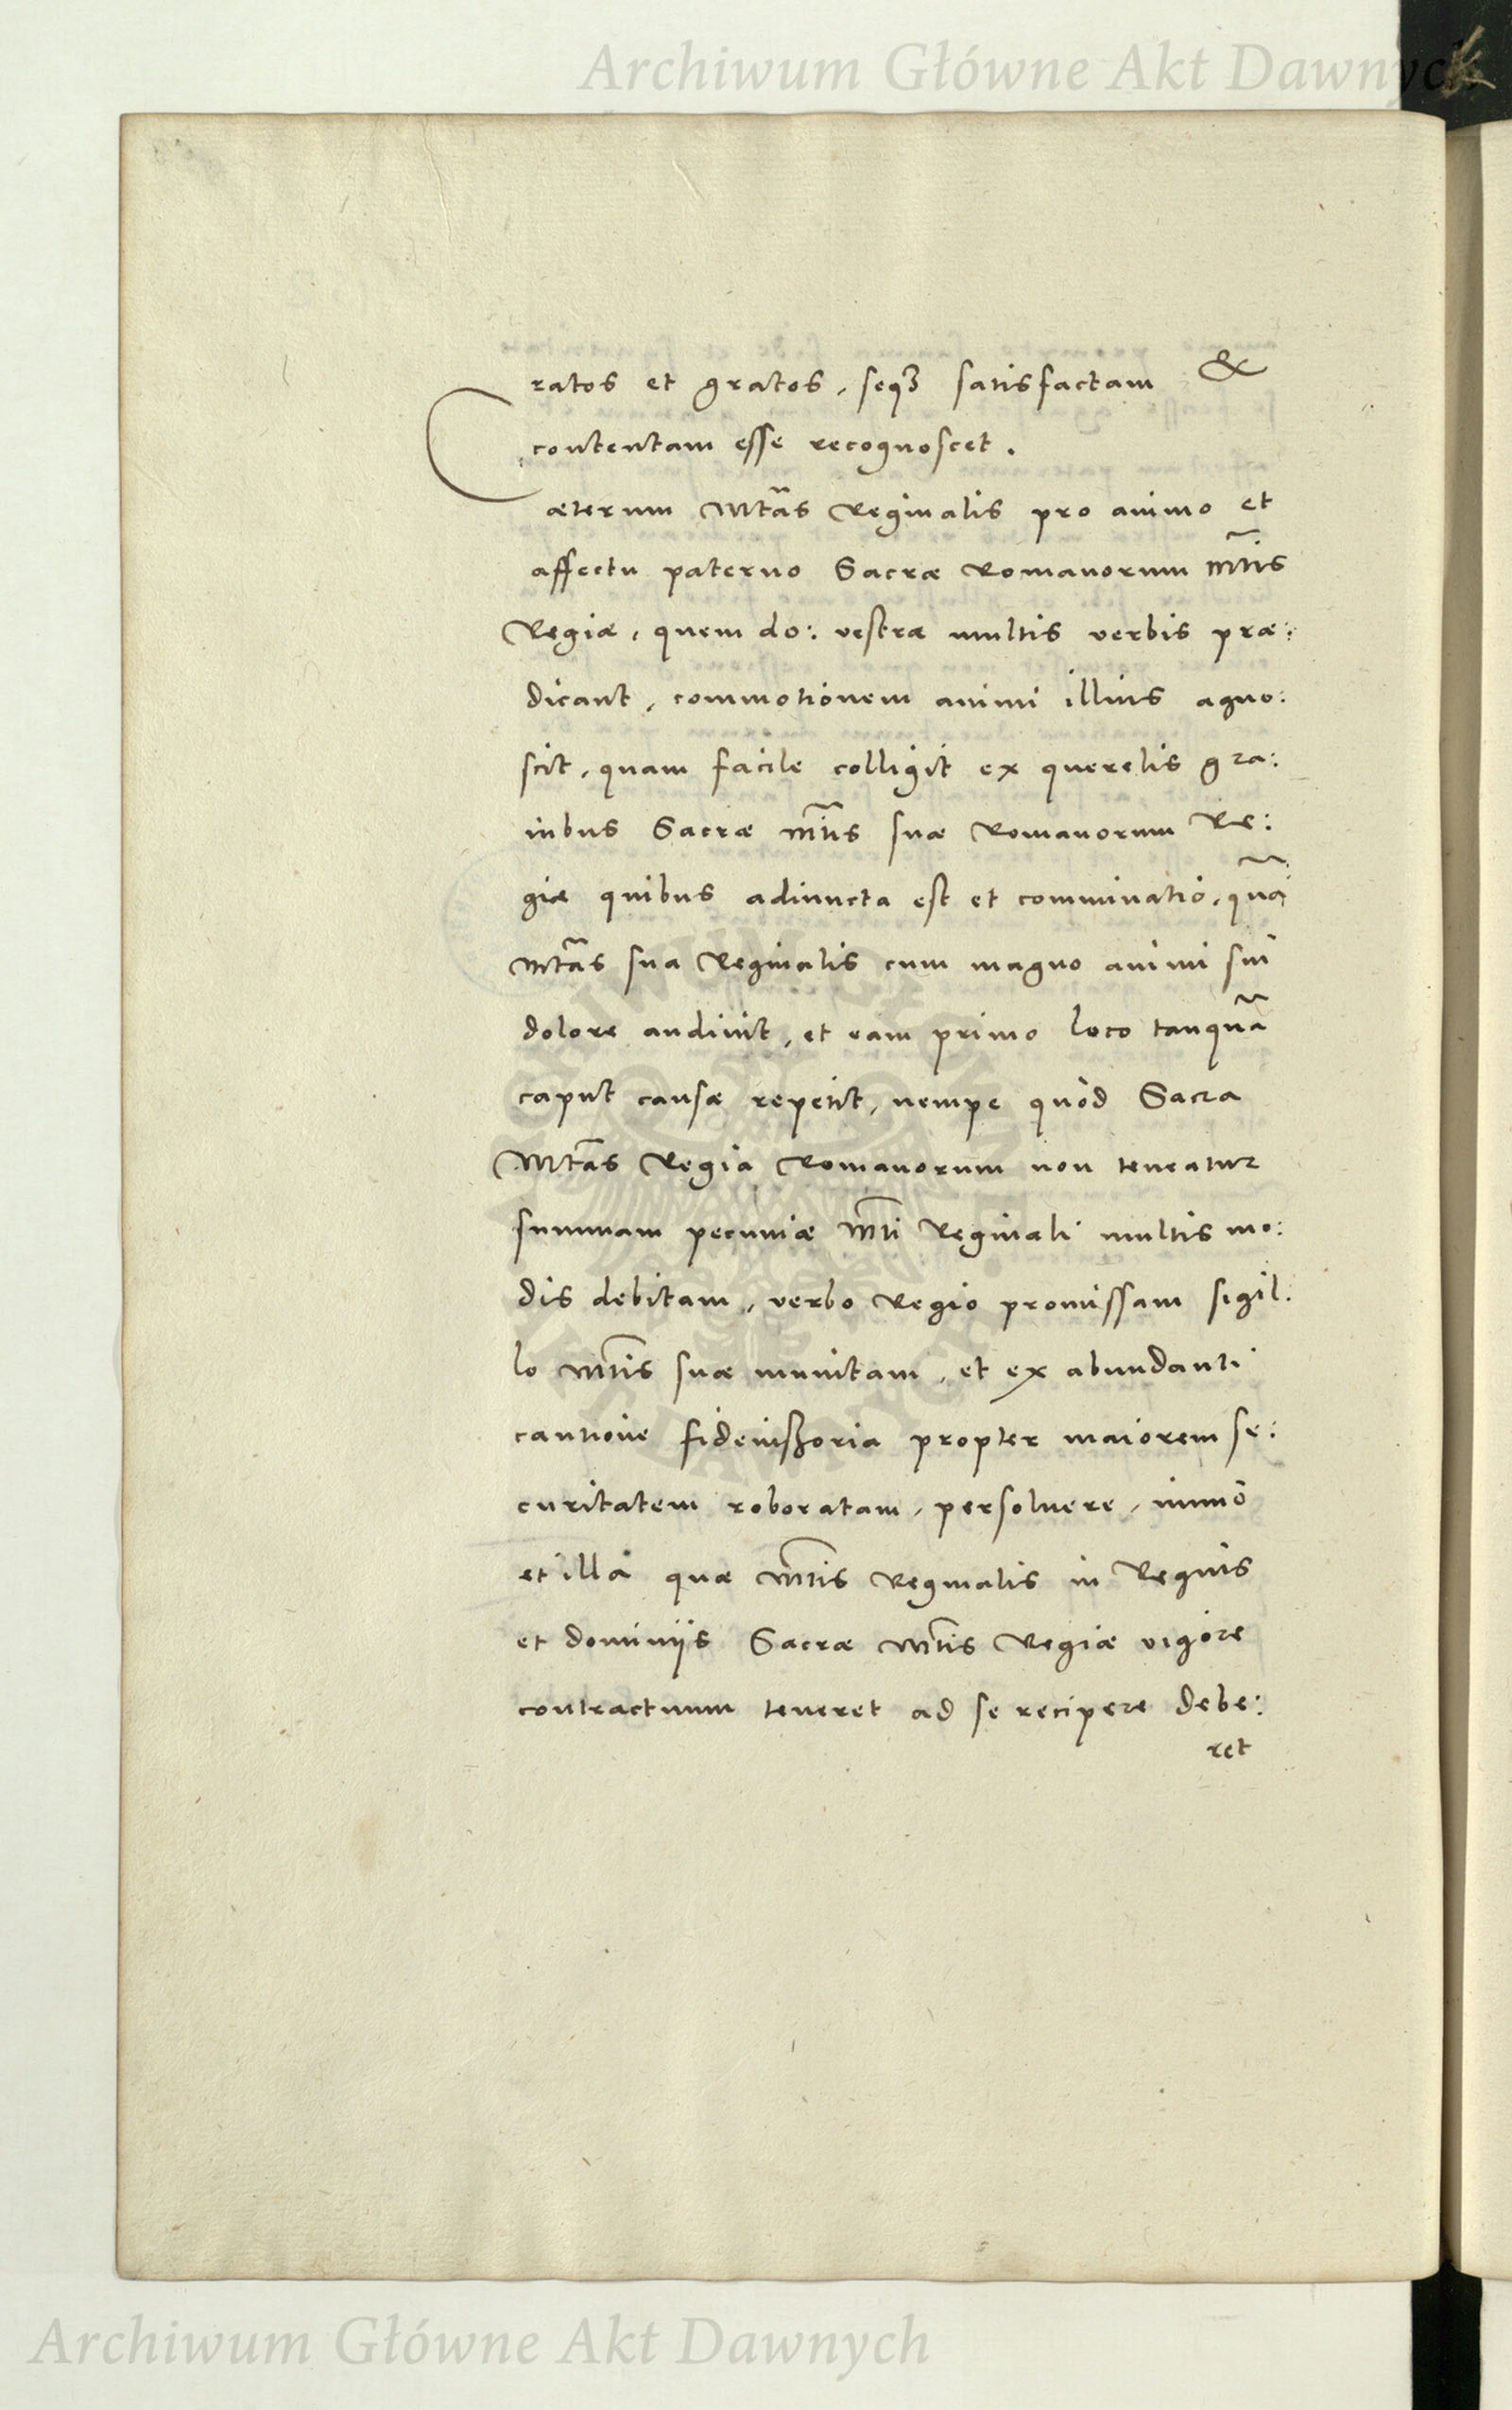 Archiwum Główne Akt Dawnych
ratos et gratos, seqꝫ satisfactam &
contentam esse recognoscet.
Cæterum Mtãs Reginalis pro animo et
affectu paterno Sacræ Romanorum Mt̃is
Regiæ, quem do: vestræ multis verbis præ:
dicant, commotionem animi illius agno:
scit, quam facile colligit ex querelis gra:
uibus Sacræ Mt̃is suæ Romanorum Re:
giæ quibus adiuncta est et comminatio, quã
Mtãs sua Reginalis cum magno animi sui
dolore audiuit, et eam primo loco tanquã
caput causæ repetit, nempe quòd Sacra
Mtãs Regia Romanorum non teneatur
summam pecuniæ Mt̃i Reginali multis mo:
dis debitam, verbo Regio promissam sigil:
lo Mt̃is suæ munitam, et ex abundanti
cautione fideiussoria propter maiorem se:
curitatem roboratam, persoluere, immò
et illa quæ Mt̃is Reginalis in Regnis
et dominijs Sacræ Mt̃is Regiæ vigore
contractuum teneret ad se recipere debe:
ret
Archiwum Główne Akt Dawnych